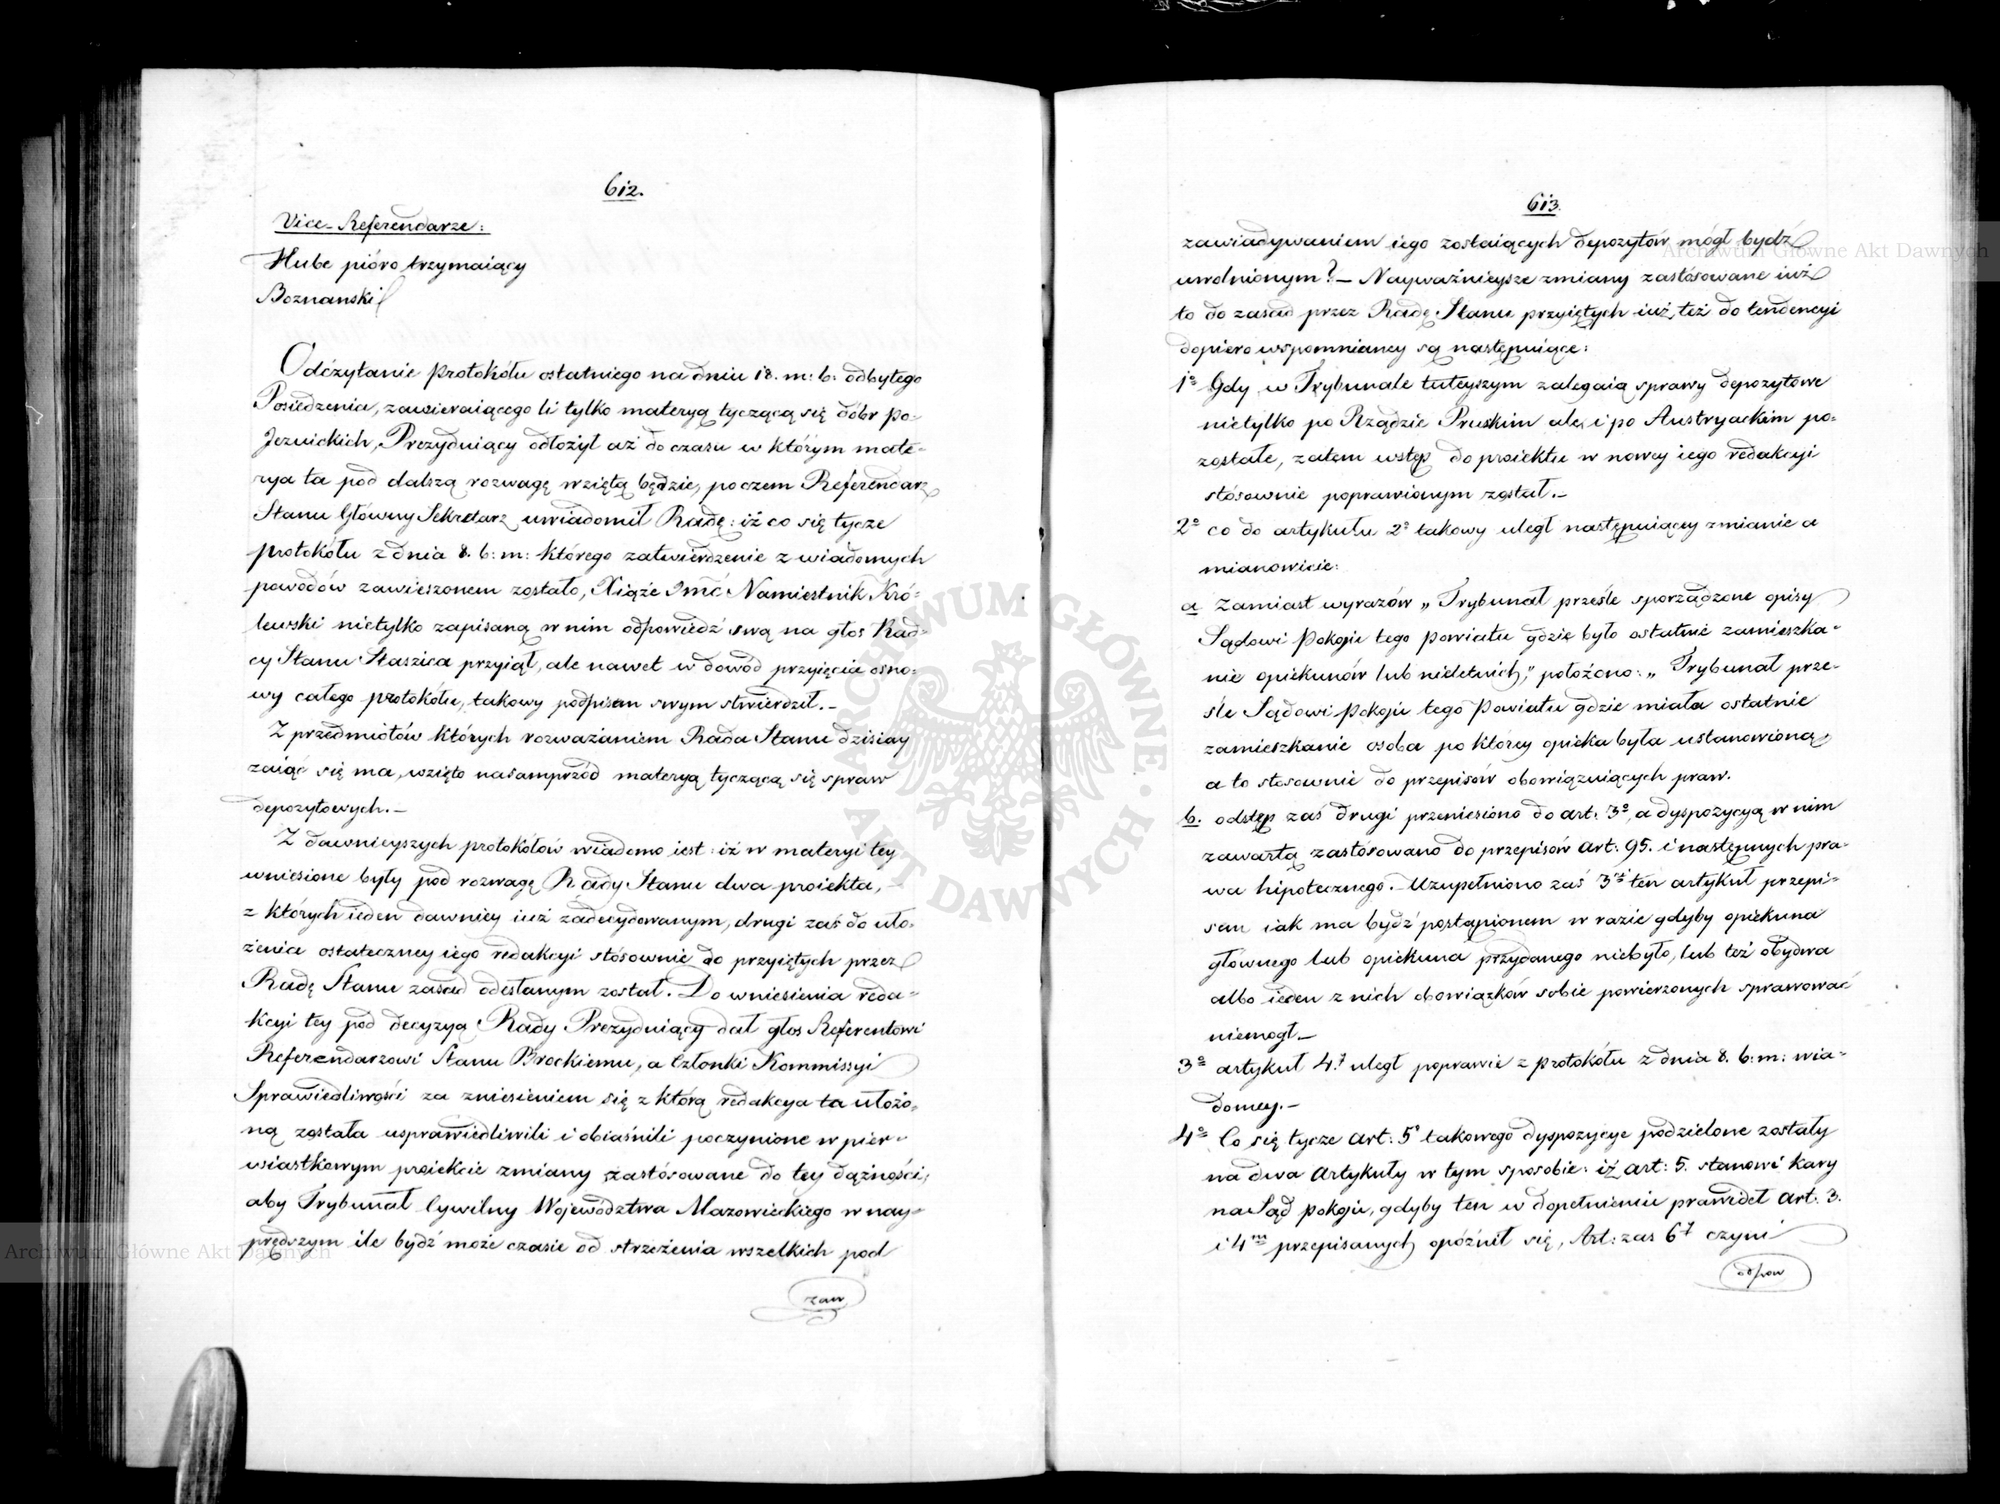 612.
Vice-Referendarze:
Hube pióro trzymaiący
Boznanski
Odczytanie protokółu ostatniego na dniu 18. m: b. odbytego
Posiedzenia, zawieraiącego li tylko materyą tyczącą się dóbr po-
Jezuickich, Prezyduiący odłożył aż do czasu w którym mate-
rya ta pod dalszą rozwagę wziętą będzie, poczem Referendarz
Stanu Główny Sekretarz uwiadomił Radę: iż co się tycze
protokółu z dnia 8. b: m: którego zatwierdzenie z wiadomych
powodów zawieszonem zostało, Xiąże Jmć Namiestnik Kró-
lewski nietylko zapisaną w nim odpowiedź swą na głos Rad-
cy Stanu Staszica przyiął, ale nawet w dowód przyięcia osno-
wy całego protokółu, takowy podpisem swym stwierdził.-
Z przedmiotów których rozważaniem Rada Stanu dzisiay
zaiąć się ma, wzięto nasamprzód materyą tyczącą się spraw
depozytowych.-
Z dawnieyszych protokółów wiadomo iest: iż w materyi tey
wniesione były pod rozwagę Rady Stanu dwa proiekta,-
z których ieden dawniey iuż zadecydowanym, drugi zaś do uło-
żenia ostateczney iego redakcyi stósownie do przyiętych przez
Radę Stanu zasad odesłanym został. Do wniesienia reda-
kcyi tey pod decyzyą Rady Prezyduiący dał głos Referentowi
Referendarzowi Stanu Brockiemu, a Członki Kommissyi
Sprawiedliwości za zniesieniem się z którą redakcya ta ułożo-
ną została usprawiedliwili i obiaśnili poczynione w pier-
wiastkowym proiekcie zmiany zastósowane do tey dążności,
aby Trybunał Cywilny Województwa Mazowieckiego w nay-
prędszym ile bydź może czasie od strzeżenia wszelkich pod
zaw
613.
zawiadywaniem iego zostaiących depozytów mógł bydź
uwolnionym?- Nayważnieysze zmiany zastósowane iuż
to do zasad przez Radę Stanu przyiętych iuż też do tendencyi
dopiero wspomnianey są następuiące:
1o Gdy w Trybunale tuteyszym zalegaią sprawy depozytowe
nietylko po Rządzie Pruskim ale i po Austryackim po-
zostałe, zatem wstęp do proiektu w nowey iego redakcyi
stósownie poprawionym został.-
2o co do artykułu 2o takowy uległ następuiącey zmianie a
mianowicie:
a zamiast wyrazów „Trybunał prześle sporządzone opisy
Sądowi Pokoju tego powiatu gdzie było ostatnie zamieszka-
nie opiekunów lub nieletnich," położono: „Trybunał prze-
śle Sądowi Pokoju tego Powiatu gdzie miała ostatnie
zamieszkanie osoba po którey opieka była ustanowioną
a to stosownie do przepisów obowiązuiących praw.
b. odstęp zaś drugi przeniesiono do art: 3o, a dyspozycyą w nim
zawartą zastósowano do przepisów art: 95. i następnych pra-
wa hipotecznego. Uzupełniono zaś 3ci ten artykuł przepi-
sem iak ma bydź postąpionem w razie gdyby opiekuna
głównego lub opiekuna przydanego niebyło, lub też obydwa
albo ieden z nich obowiązków sobie powierzonych sprawować
niemogł.-
3o artykuł 4.ty uległ poprawie z protokółu z dnia 8. b: m: wia-
domey.-
4o Co się tycze art: 5o takowego dyspozycye podzielone zostały
na dwa artykuły w tym sposobie: iż art: 5. stanowi kary
na Sąd pokoju, gdyby ten w dopełnieniu prawideł art: 3.
i 4m przepisanych opóźnił się, Art: zaś 6ty czyni
odpow
Archiwum Główne Akt Dawnych
Archiwum Główne Akt Dawnych
ARCHIWUM GŁÓWNE AKT DAWNYCH